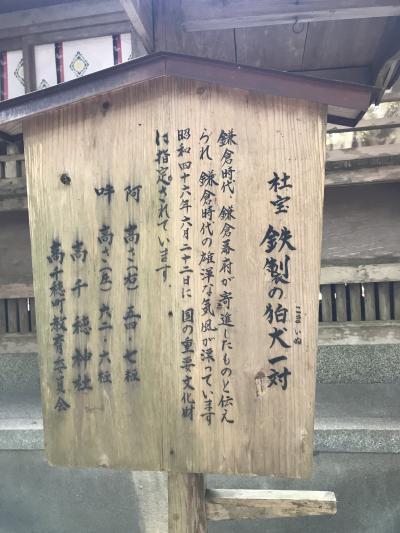 社宝 鉄製の狛犬一対
こまいぬ
鎌倉時代、鎌倉幕府が寄進したものと伝え
られ、鎌倉時代の雄渾な気風が漂っています
昭和四十六年六月二十二日に 国の重要文化財
に指定されています。
阿 高さ(右)五四・七糎
吽 高さ(左)六二・六糎
高千穂神社
高千穂町教育委員会